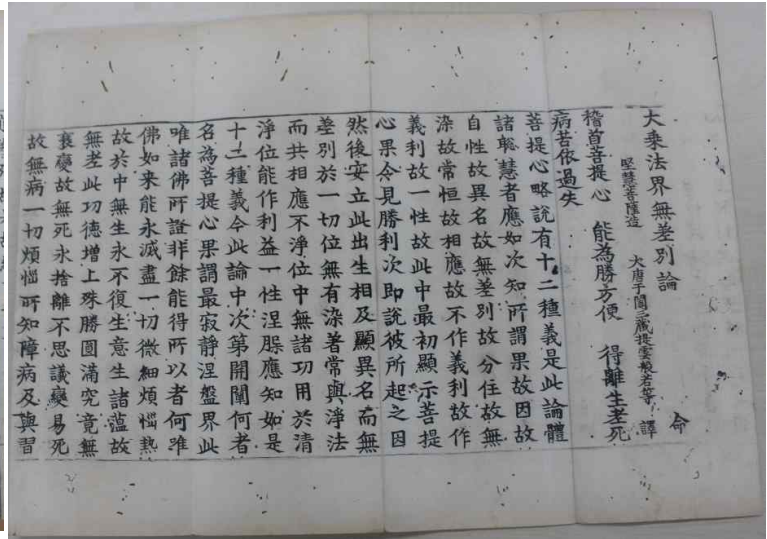 大乗法界無差別論　命
堅慧菩薩造　大唐于闐三藏提雲般若等譯
稽首菩提心　能為勝方便　得離生老死
病苦依過失
菩提心略說有十二種義是此論體
諸聡慧者應如次知所謂果故因故
自性故異名故無差別故分住故無
染故常恒故相應故不作義利故作
義利故一性故此中最初顯示菩提
心果令見勝利次即說彼所起之因
然後安立此出生相及顯異名而無
差別於一切位無有染著常與淨法
而共相應不淨位中無諸功用於清
淨位能作利益一性涅槃應知如是
十二種義今此論中次第開闡何者
名為菩提心果謂最寂靜涅盤界此
唯諸佛所證非餘能得所以者何唯
佛如来能永滅盡一切微細煩惱熱
故於中無生永不復生意生諸蕴故
無老此功德增上殊勝圓滿究竟無
衰變故無死永捨離不思議變易死
故無病一切煩惱所知障病及與習